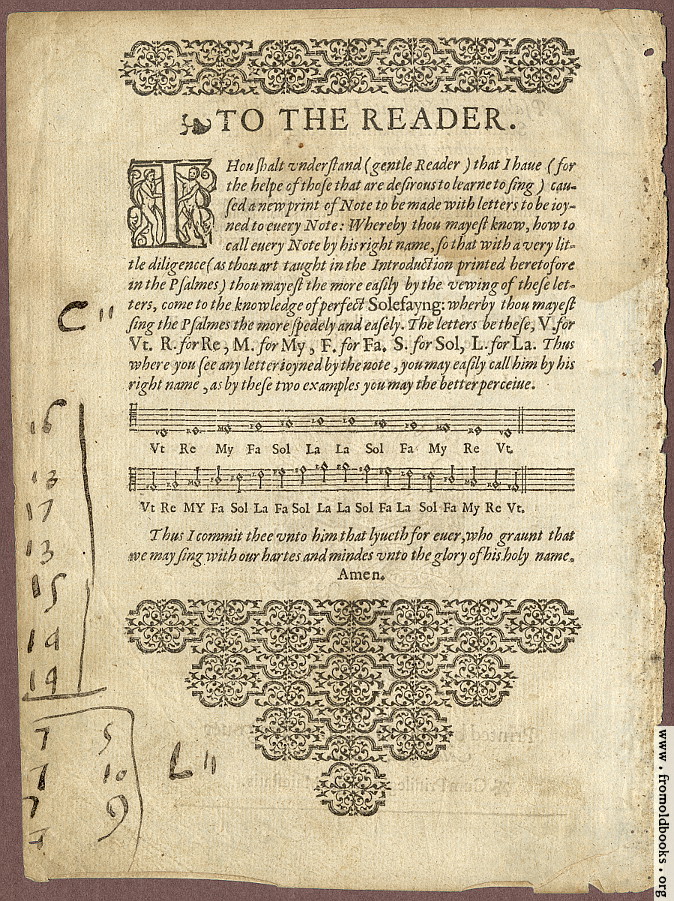 TO THE READER.
THou shalt vnderstand (gentle Reader) that I haue (for
the helpe of those that are desirous to learne to sing) cau-
sed a new print of Note to be made with letters to be ioy-
ned to euery Note: Whereby thou mayest know, how to
call euery Note by his right name, so that with a very lit-
tle diligence (as thou art taught in the Introduction printed heretofore
in the Psalmes) thou mayest the more easily by the vewing of these let-
ters, come to the knowledge of perfect Solefayng: wherby thou mayest
sing the Psalmes the more spedely and easely. The letters be these, V. for
Vt. R. for Re, M. for My, F. for Fa. S. for Sol, L. for La. Thus
where you see any letter ioyned by the note, you may easily call him by his
right name, as by these two examples you may the better perceiue.
Vt Re My Fa Sol La La Sol Fa My Re Vt.
Vt Re MY Fa Sol La Fa Sol La La Sol Fa La Sol Fa My Re Vt.
Thus I commit thee vnto him that lyueth for euer, who graunt that
we may sing with our hartes and mindes vnto the glory of his holy name.
Amen.
C"
13
17
13
15
14
14
7 5
7 10
7 9
7
L"
www.fromoldbooks.org